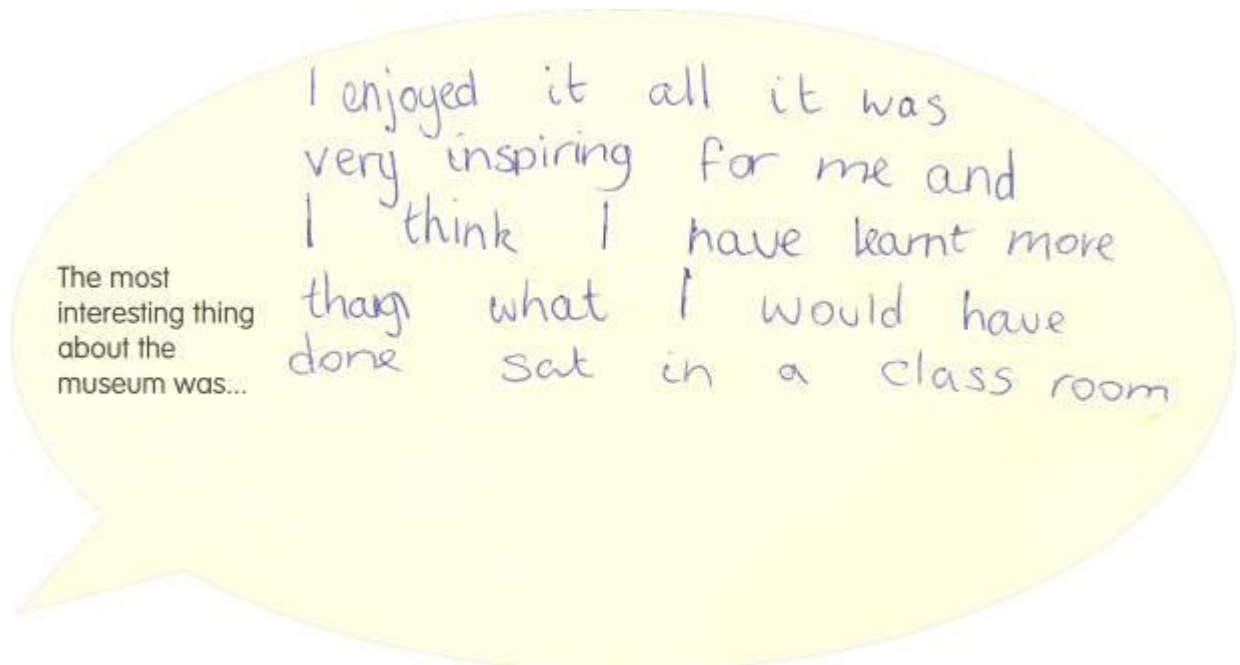 The most
interesting thing
about the
museum was...
I enjoyed it all it was
very inspiring for me and
I think I have learnt more
than what I would have
done sat in a class room